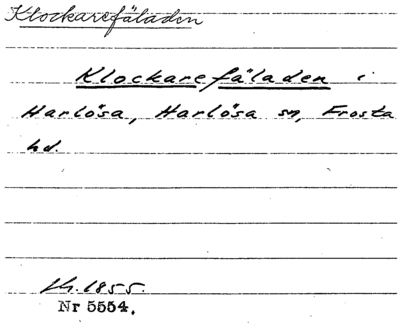 Klockarefäladen
Klockarefäladen i
Harlösa, Harlösa sn, Frosta
hd.
1855.
Nr 5554.